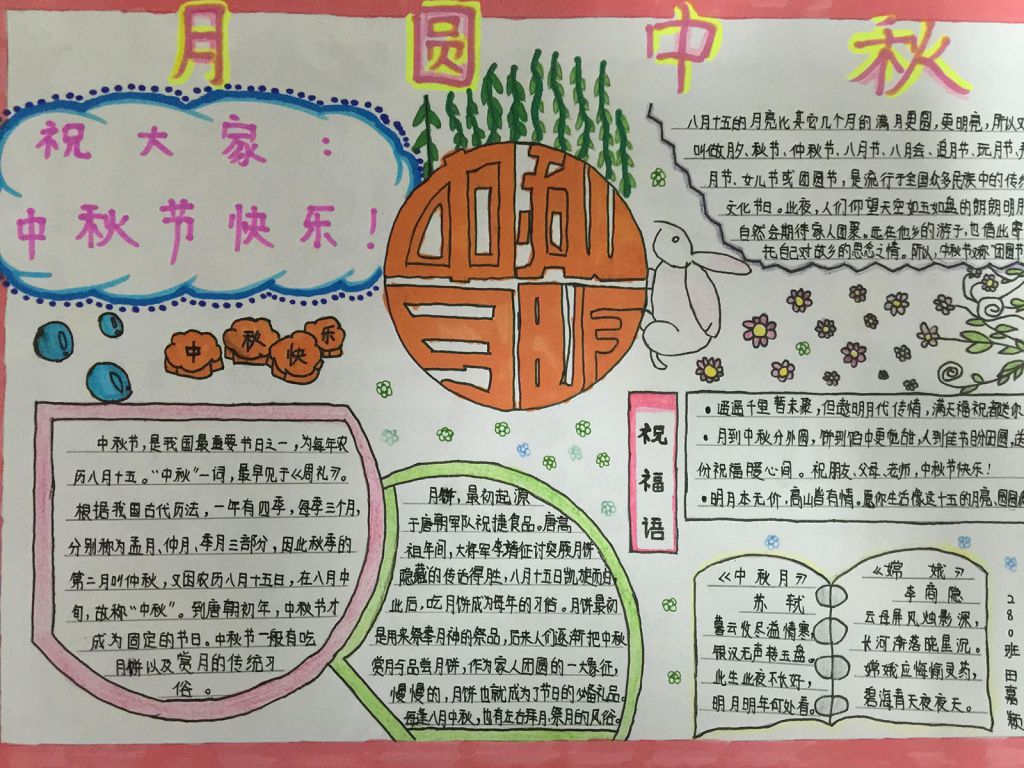 月圆中秋
祝大家：
中秋节快乐！
中秋
中秋快乐
八月十五的月亮比其它几个月的满月更圆，更明亮，所以又
叫做月夕、秋节、仲秋节、八月节、八月会、追月节、玩月节、
月节、女儿节或团圆节，是流行于全国众多民族中的传统
文化节日。此夜，人们仰望天空如玉如盘的朗朗明月
自然会期待家人团聚。远在他乡的游子，也借此寄
托自己对故乡的思念之情。所以，中秋节又称"团圆节
祝福语
•遥遥千里暂未聚，但邀明月代传情，满天福祝都送你
•月到中秋分外圆，饼到伯中更觉甜，人到佳节盼团圆，送
份祝福暖心间。祝朋友、父母、老师，中秋节快乐！
•明月本无价，高山皆有情。愿你生活像这十五的月亮，圆圆
中秋节，是我国最重要节日之一，为每年农
历八月十五。“中秋”一词，最早见于《周礼》。
根据我国古代历法，一年有四季，每季三个月，
分别称为孟月、仲月、季月三部分，因此秋季的
第二月叫仲秋，又因农历八月十五日，在八月中
旬，故称“中秋”。到唐朝初年，中秋节才
成为固定的节日。中秋节一般有吃
月饼以及赏月的传统习
俗。
月饼，最初起源
于唐朝军队祝捷食品。唐高
祖年间，大将军李靖征讨突厥月饼
隐藏的传话得胜，八月十五日凯旋而归
此后，吃月饼成为每年的习俗。月饼最初
是用来祭奉月神的祭品，后来人们逐渐把中秋
赏月与品尝月饼，作为家人团圆的一大象征，
慢慢的，月饼也就成为了节日的必备礼品。
每逢八月中秋，也有左右拜月祭月的风俗。
《中秋月》
苏轼
暮云收尽溢清寒，
银汉无声转玉盘。
此生此夜不长好，
明月明年何处看。
《嫦娥》
李商隐
云母屏风烛影深，
长河渐落晓星沉。
嫦娥应悔偷灵药，
碧海青天夜夜天。
280班田嘉颖